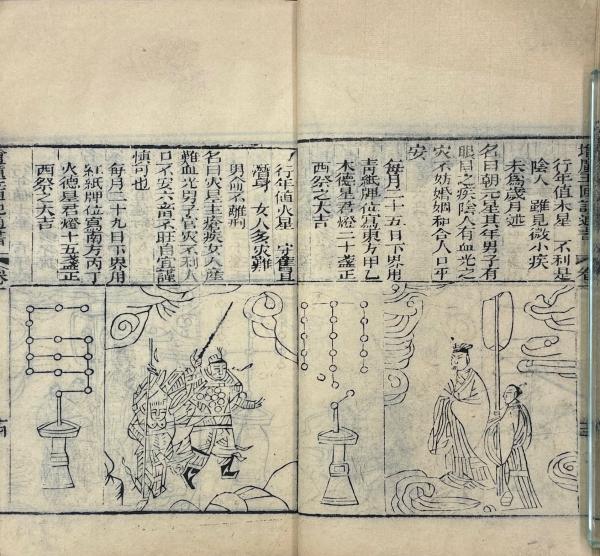 行年值木星 不利是
陰人 雖見微小疾
未為歲月述
名曰朝元星其年男子有
眼目之疾陰人有血光之
灾不妨婚姻和合人口平
安
每月二十五日下界用
青紙牌位寫東方甲乙
木德星君燈二十盞正
西祭之大吉
行年值火星
厝身 女人多灾難
男命不離刑
名曰火星主瘡疾女人産
難血光男子官灾不利人
口不安六畜不旺自宜謹
慎可也
每月二十九日下界用
紅紙牌位寫南方丙丁
火德星君燈十五盞正
西祭之大吉